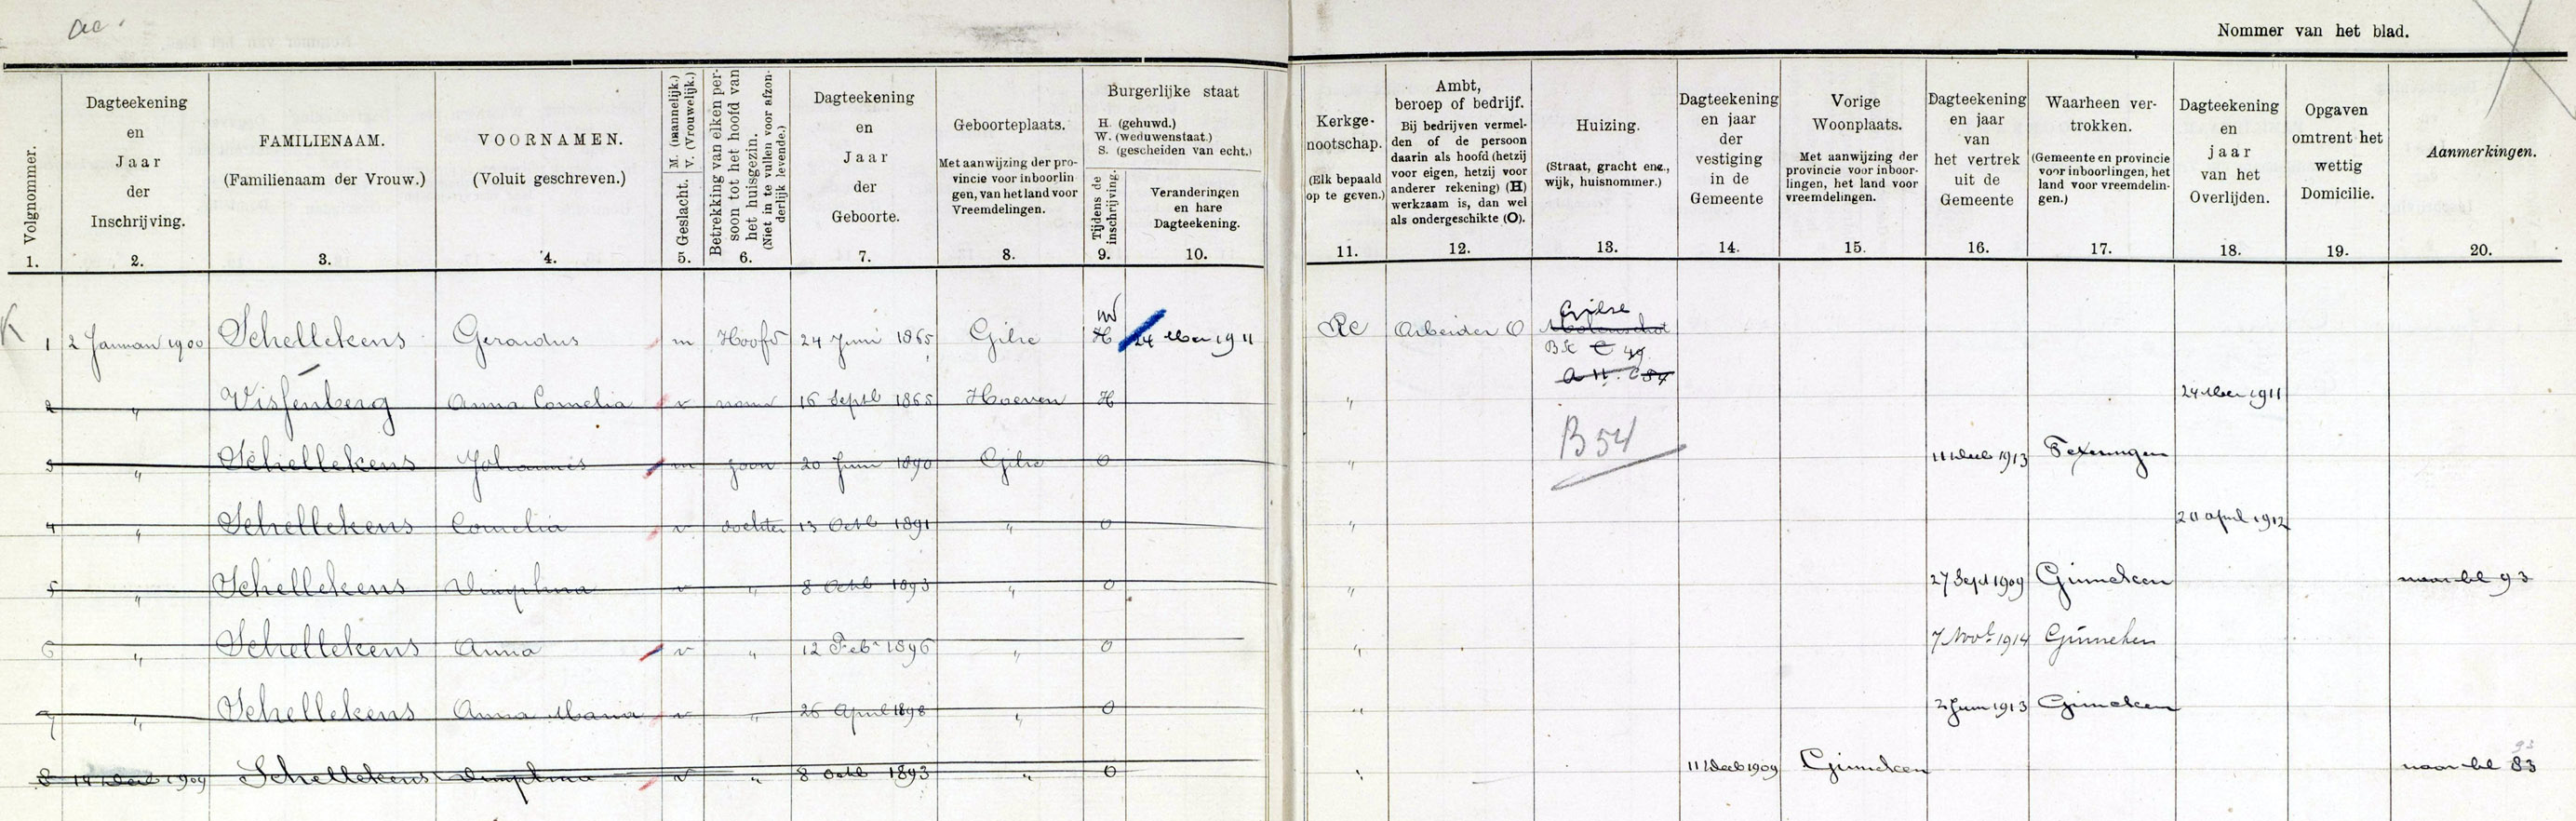 ae.
Nommer van het blad.
Volgnommer.
1.
Dagteekening
en
Jaar
der
Inschrijving.
2.
FAMILIENAAM.
(Familienaam der Vrouw.)
3.
VOORNAMEN.
(Voluit geschreven.)
4.
Geslacht. M. (mannelijk.)
V. (Vrouwelijk.)
5.
Betrekking van elken per-
soon tot het hoofd van
het huisgezin.
(Niet in te vullen voor afzon-
derlijk levende.)
6.
Dagteekening
en
Jaar
der
Geboorte.
7.
Geboorteplaats.
Met aanwijzing der pro-
vincie voor inboorlin-
gen, van het land voor
Vreemdelingen.
8.
Burgerlijke staat
H. (gehuwd.)
W. (weduwenstaat.)
S. (gescheiden van echt.)
Tijdens de
inschrijving.
9.
Veranderingen
en hare
Dagteekening.
10.
Kerkge-
nootschap.
(Elk bepaald
op te geven.)
11.
Ambt,
beroep of bedrijf.
Bij bedrijven vermel-
den of de persoon
daarin als hoofd (hetzij
voor eigen, hetzij voor
anderer rekening) (H)
werkzaam is, dan wel
als ondergeschikte (O).
12.
Huizing.
(Straat, gracht enz.,
wijk, huisnommer.)
13.
Dagteekening
en jaar
der
vestiging
in de
Gemeente
14.
Vorige
Woonplaats.
Met aanwijzing der
provincie voor inboor-
lingen, het land voor
vreemdelingen.
15.
Dagteekening
en jaar
van
het vertrek
uit de
Gemeente
16.
Waarheen ver-
trokken.
(Gemeente en provincie
voor inboorlingen, het
land voor vreemdelin-
gen.)
17.
Dagteekening
en
jaar
van het
Overlijden.
18.
Opgaven
omtrent het
wettig
Domicilie.
19.
Aanmerkingen.
20.
K 1 2 Januari 1900 Schellekens Gerardus m Hoofd 24 Juni 1865 Gilze W H 24 Mei 1911 RC Arbeider O Gilze
Molenschot
49
B 54
2 " Wissenberg Anna Cornelia v vrouw 16 Sept 1865 Hoeven H " 24 Mei 1911
3 " Schellekens Johannes m zoon 20 Juni 1890 Gilze O " 11 Dec 1913 Teteringen
4 " Schellekens Cornelia v dochter 13 Octb 1891 " O " 20 april 1912
5 " Schellekens Dimphna v " 8 Octb 1893 " O " 27 Sept 1909 Ginneken naar bl 93
6 " Schellekens Anna v " 12 Feb 1896 " O " 7 Novb 1914 Ginneken
7 " Schellekens Anna Maria v " 26 April 1898 " O " 2 Juni 1913 Ginneken
8 14 Dec 1909 Schellekens Dimphna v " 8 Octb 1893 " O " 11 Decb 1909 Ginneken naar bl 83
93